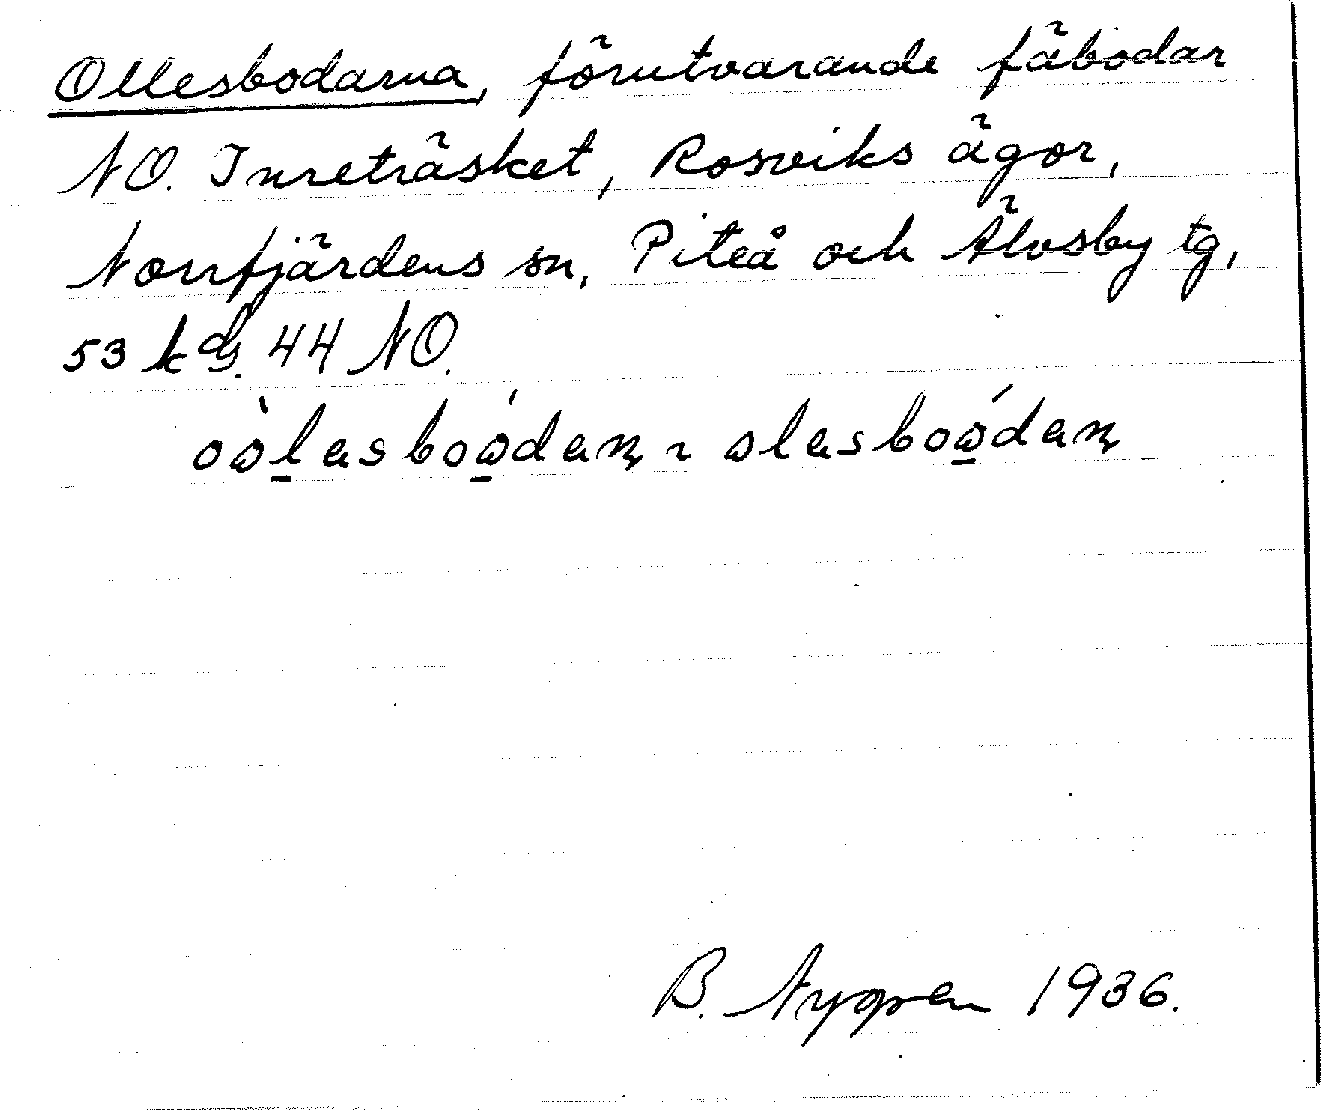 Ollesbodarna, förutvarande fäbodar
NO. Inreträsket, Rosviks ägor,
Norrfjärdens sn, Piteå och Älvsby tg,
53 kds. 44 NO.
B. Nygren 1936.